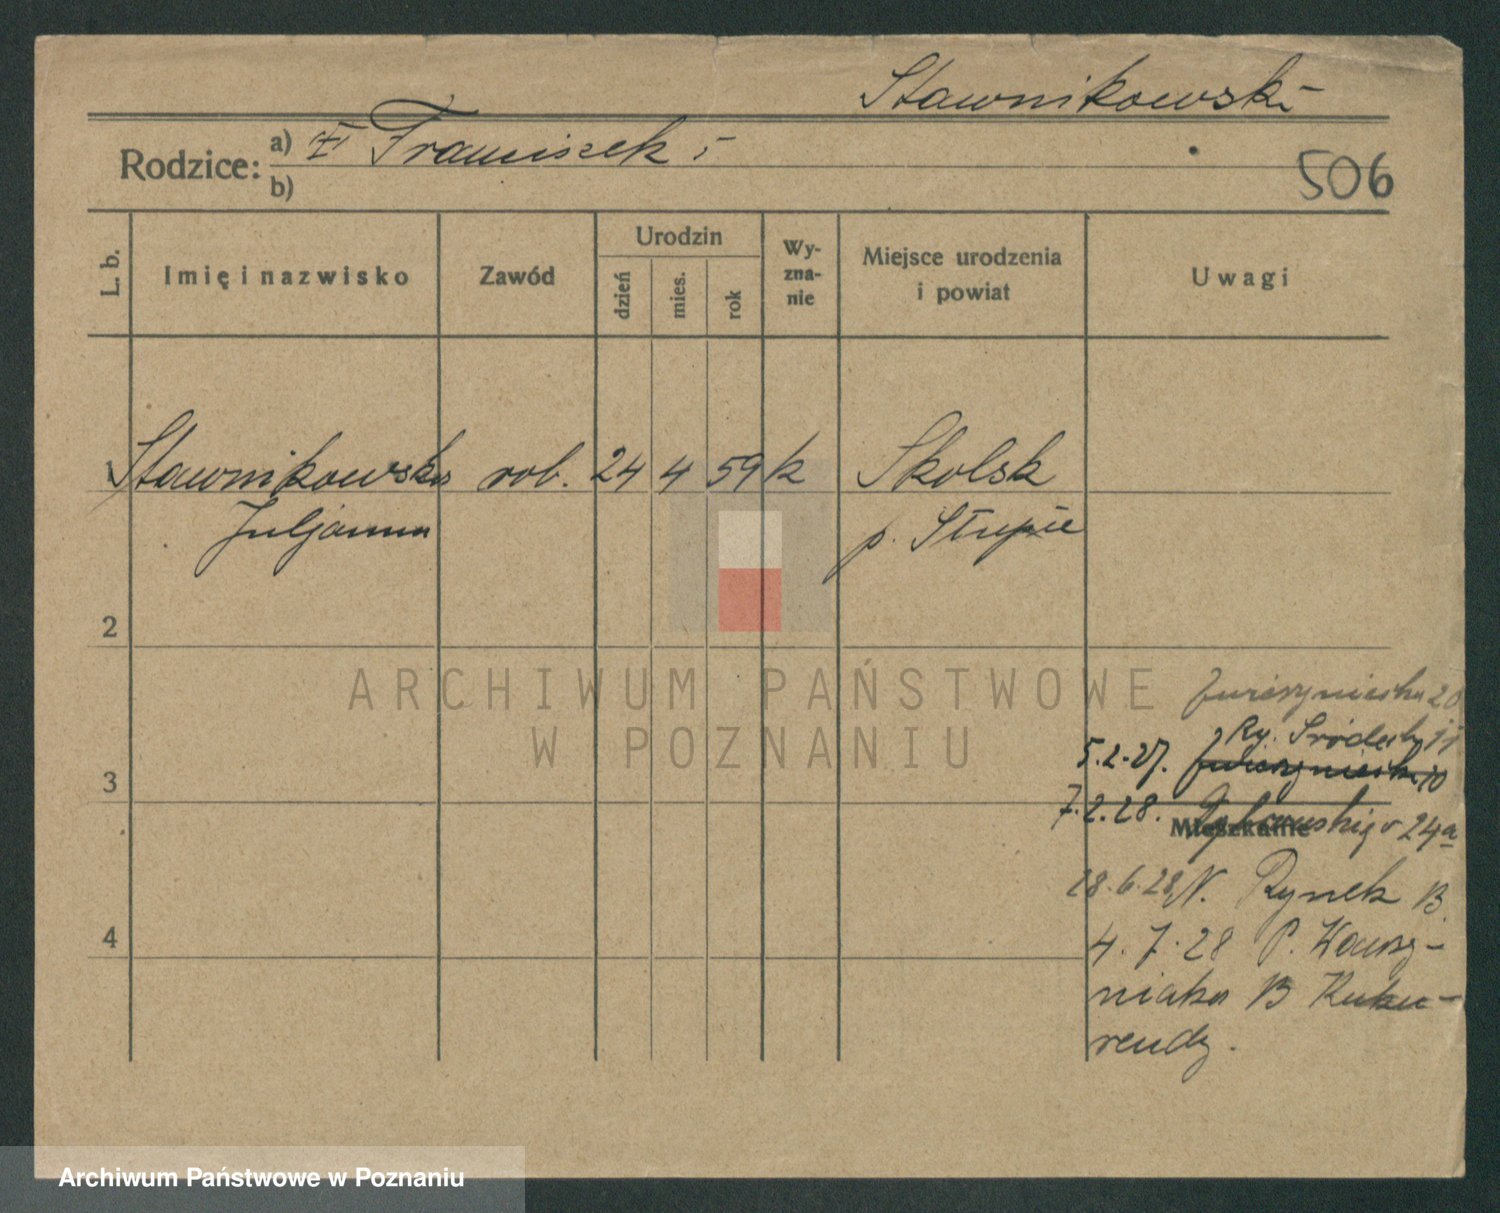 Stawnikowski
Rodzice: a) Franciszek
b)
506
L. b.
Imię i nazwisko
Zawód
Urodzin
dzień
mies.
rok
Wy-
zna-
nie
Miejsce urodzenia
i powiat
Uwagi
1 Stawnikowska rob. 24 4 59 k Skolsk
Juljanna p. Słupie
2
3
4
20
5.2.27. Ry. Śródecky
7.2.28. 24a
Mieszkanie
18.6.28 N. Rynek 13
4.7.28 P. Wawrzy-
niaka 13
ARCHIWUM PAŃSTWOWE
W POZNANIU
Archiwum Państwowe w Poznaniu